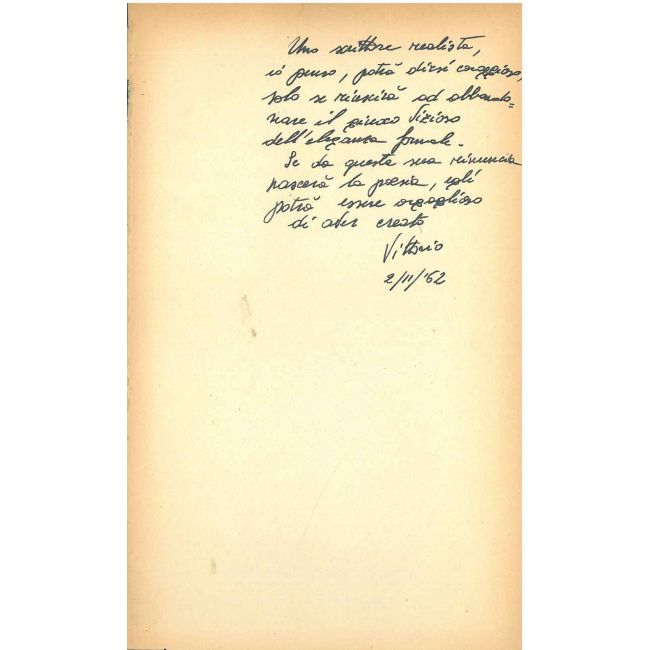 Uno scrittore realista,
io penso, potrà dirsi coraggioso,
solo se riuscirà ad abbando=
nare il giuoco vizioso
dell'eleganza formale.
Se da questa sua rinuncia
nascerà la poesia, egli
potrà essere orgoglioso
di aver creato
Vittorio
2/11/'62